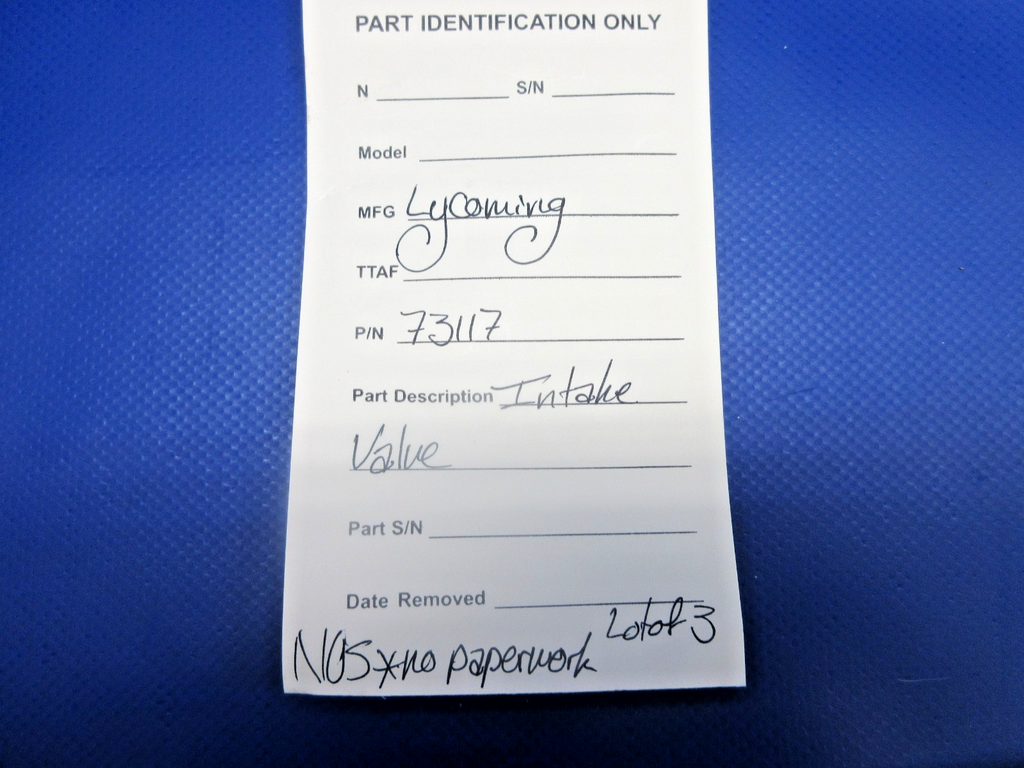 PART IDENTIFICATION ONLY
N S/N
Model
MFG Lycoming
TTAF
P/N 73117
Part Description Intake
Valve
Part S/N
Date Removed
Lot of 3
NOS *no paperwork